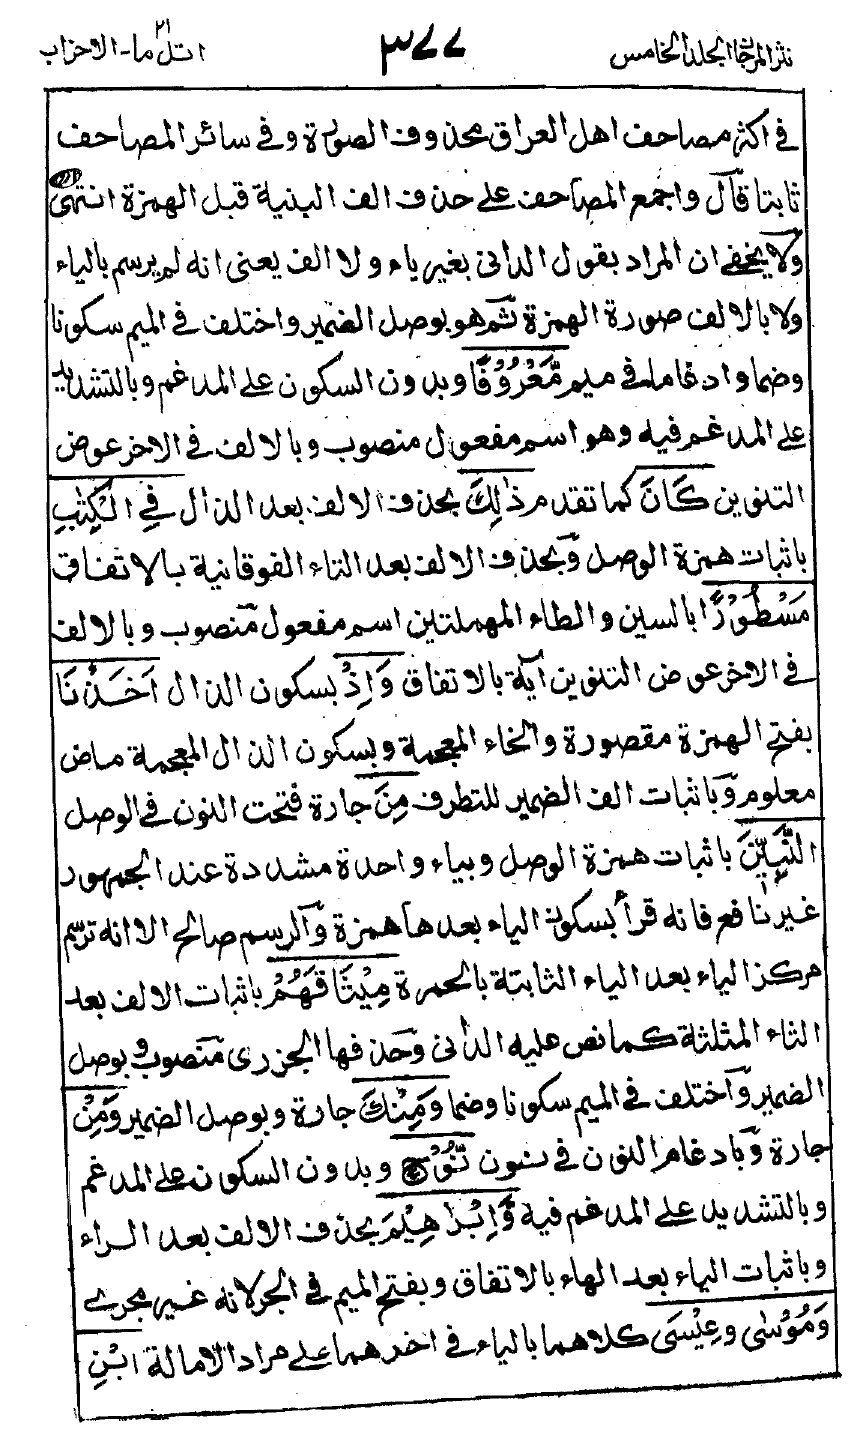 نثر المرجان المجلد الخامس ٣٧٧ اتل ما - الاحزاب ٢١
في اكثر مصاحف اهل العراق محذوف الصورة وفي سائر المصاحف
ثابتا قال واجمع المصاحف على حذف الف البنية قبل الهمزة انتهى
ولا يخفى ان المراد بقول الدانى بغير ياء ولا الف يعنى انه لم يرسم بالياء
ولا بالالف صورة الهمزة ثم هو بوصل الضمير واختلف في الميم سكونا
وضما وادغاما في ميم مَّعْرُوْفًا وبدون السكون على المدغم وبالتشديد
على المدغم فيه وهو اسم مفعول منصوب وبالالف في الاخر عوض
التنوين كَانَ كما تقدم ذٰلِكَ بحذف الالف بعد الذال فِي الْكِتٰبِ
باثبات همزة الوصل وبحذف الالف بعد التاء الفوقانية بالاتفاق
مَسْطُوْرًا بالسين والطاء المهملتين اسم مفعول منصوب وبالالف
في الاخر عوض التنوين اية بالاتفاق وَاِذْ بسكون الذال اَخَذْنَا
بفتح الهمزة مقصورة والخاء المعجمة وبسكون الذال المعجمة ماض
معلوم وباثبات الف الضمير للتطرف مِنَ جارة فتحت النون في الوصل
النَّبِيّنَ باثبات همزة الوصل وبياء واحدة مشددة عند الجمهور
غير نافع فانه قرأ بسكون الياء بعدها همزة والرسم صالح الا انه ترسم
مركز الياء بعد الياء الثابتة بالحمرة مِيْثَاقَهُمْ باثبات الالف بعد
الثاء المثلثة كما نص عليه الدانى وحذفها الجزرى منصوب و بوصل
الضمير واختلف في الميم سكونا وضما وَمِنْكَ جارة وبوصل الضمير وَمِنْ
جارة وبادغام النون في نون نُّوْحٍ وبدون السكون على المدغم
وبالتشديد على المدغم فيه وَّاِبْرٰهِيْمَ بحذف الالف بعد الراء
وباثبات الياء بعد الهاء بالاتفاق وبفتح الميم في الجر لانه غير مجرى
وَمُوْسٰى وعِيْسَى كلاهما بالياء في اخرهما على مراد الامالة ابْنِ